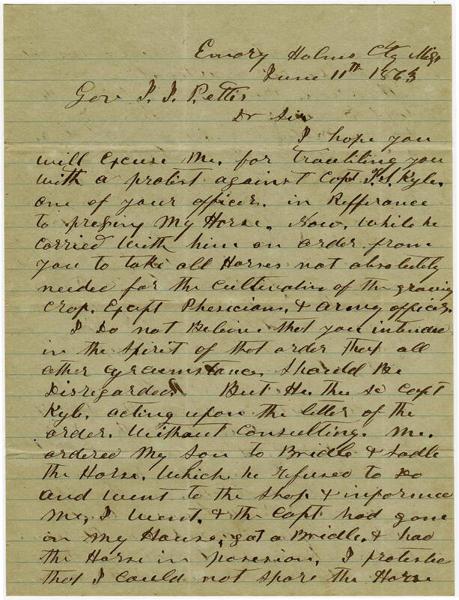 Emory Holms Cty Miss
June 11th 1863
Gov J. J. Pettis
Dr Sir
I hope you
will Excuse Me, for troubling you
with a protest against Capt J.S. Kyle.
one of your officers. in Refferance
to pressing My Horse. Now, while he
carried with him an order from
you to take all Horses not absolutely
needed for the Cultivation of the growing
Crop. Except Phesicians, & army officers.
I do not Believe that you intended
in the Spirit of that order that all
other cyrcumstances Should Be
Disregarded But He, the sd Capt
Kyle, acting upon the letter of the
order. Without Consulting. Me.
ordered My Son to Bridle & Sadle
the Horse. Which he refused to do
and went to the Shop & informed
Me, I went. & the Capt had gone
in my House, got a Bridle, & had
the Horse in possesion, I protested
that I could not spare the Horse